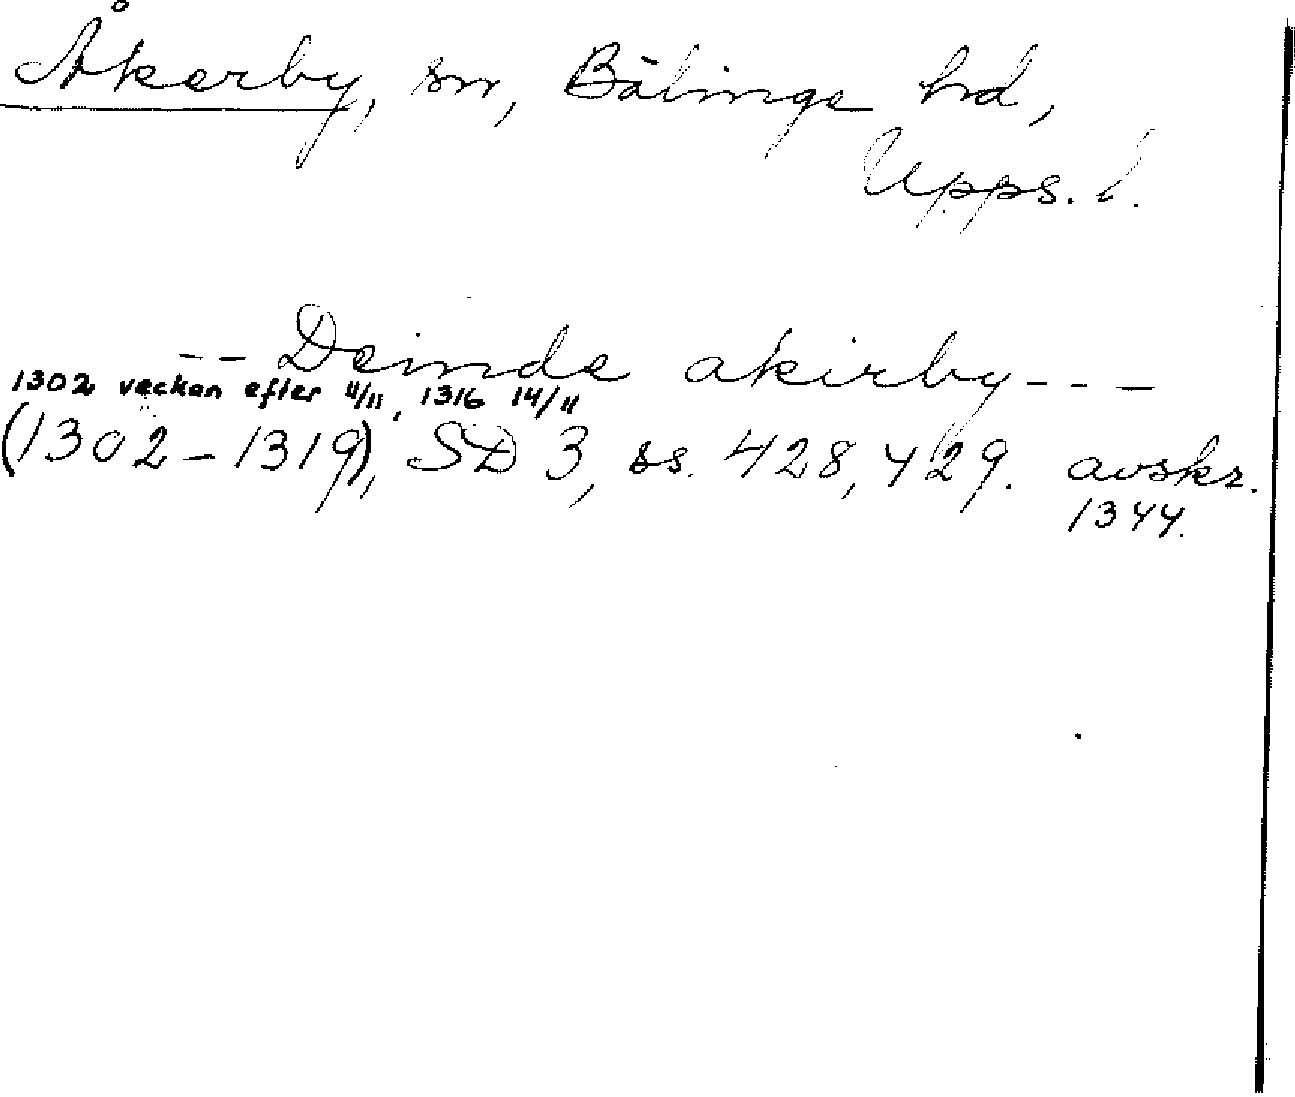 Åkerby, sn, Bälinge hd,
Upps. l.
-- Deinde akirby---
1302 veckan efter 11/11, 1316 14/11
(1302-1319), SD 3, ss. 428, 429. avskr.
1344.